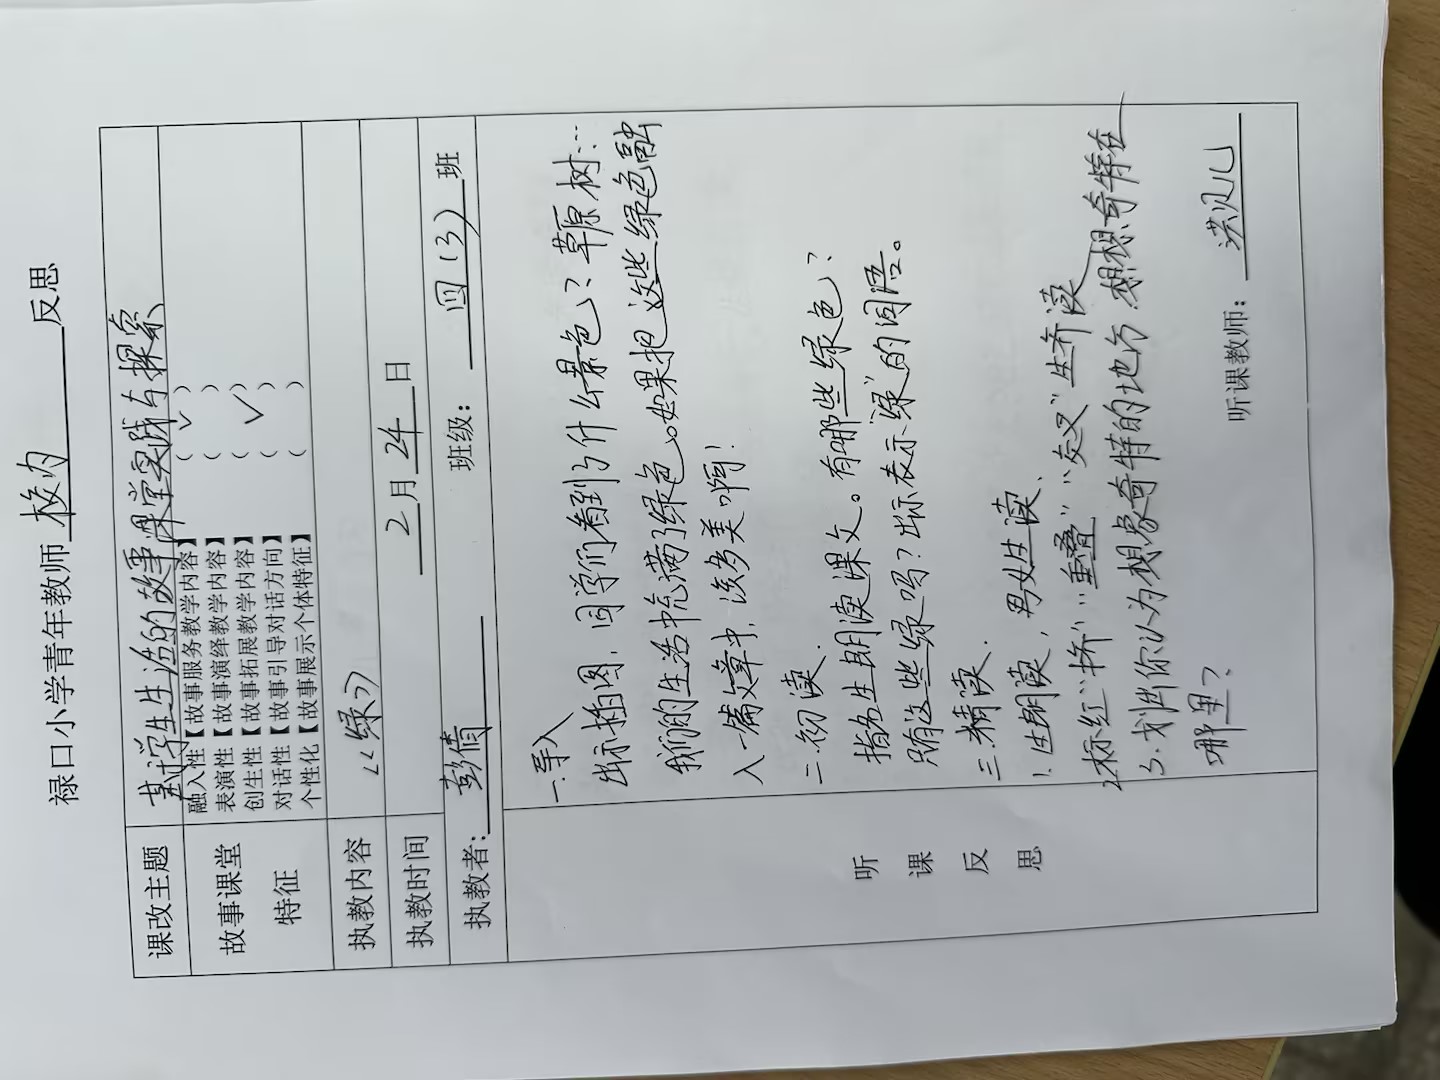 禄口小学青年教师 校内 反思
课改主题 基于学生生活的故事课堂实践与探索
故事课堂特征
融入性【故事服务教学内容】 （ √ ）
表演性【故事演绎教学内容】 （ ）
创生性【故事拓展教学内容】 （ √ ）
对话性【故事引导对话方向】 （ ）
个性化【故事展示个体特征】 （ ）
执教内容 《绿》
执教时间 2月24日
执教者：彭倩 班级：四（3）班
听课反思
一.导入
出示插图，同学们看到了什么景色？草原 树…
我们的生活中充满了绿色。如果把这些绿色融
入一篇文章中，该多美啊！
二.初读.
指名生朗读课文。有哪些绿色？
只有这些绿吗？出示表示“绿”的词语。
三.精读.
1.生朗读，男女生读.
2.标红“挤”“重叠”“交叉”生齐读
3.划出你认为想象奇特的地方.想想奇特在
哪里？
听课教师：洪贝儿